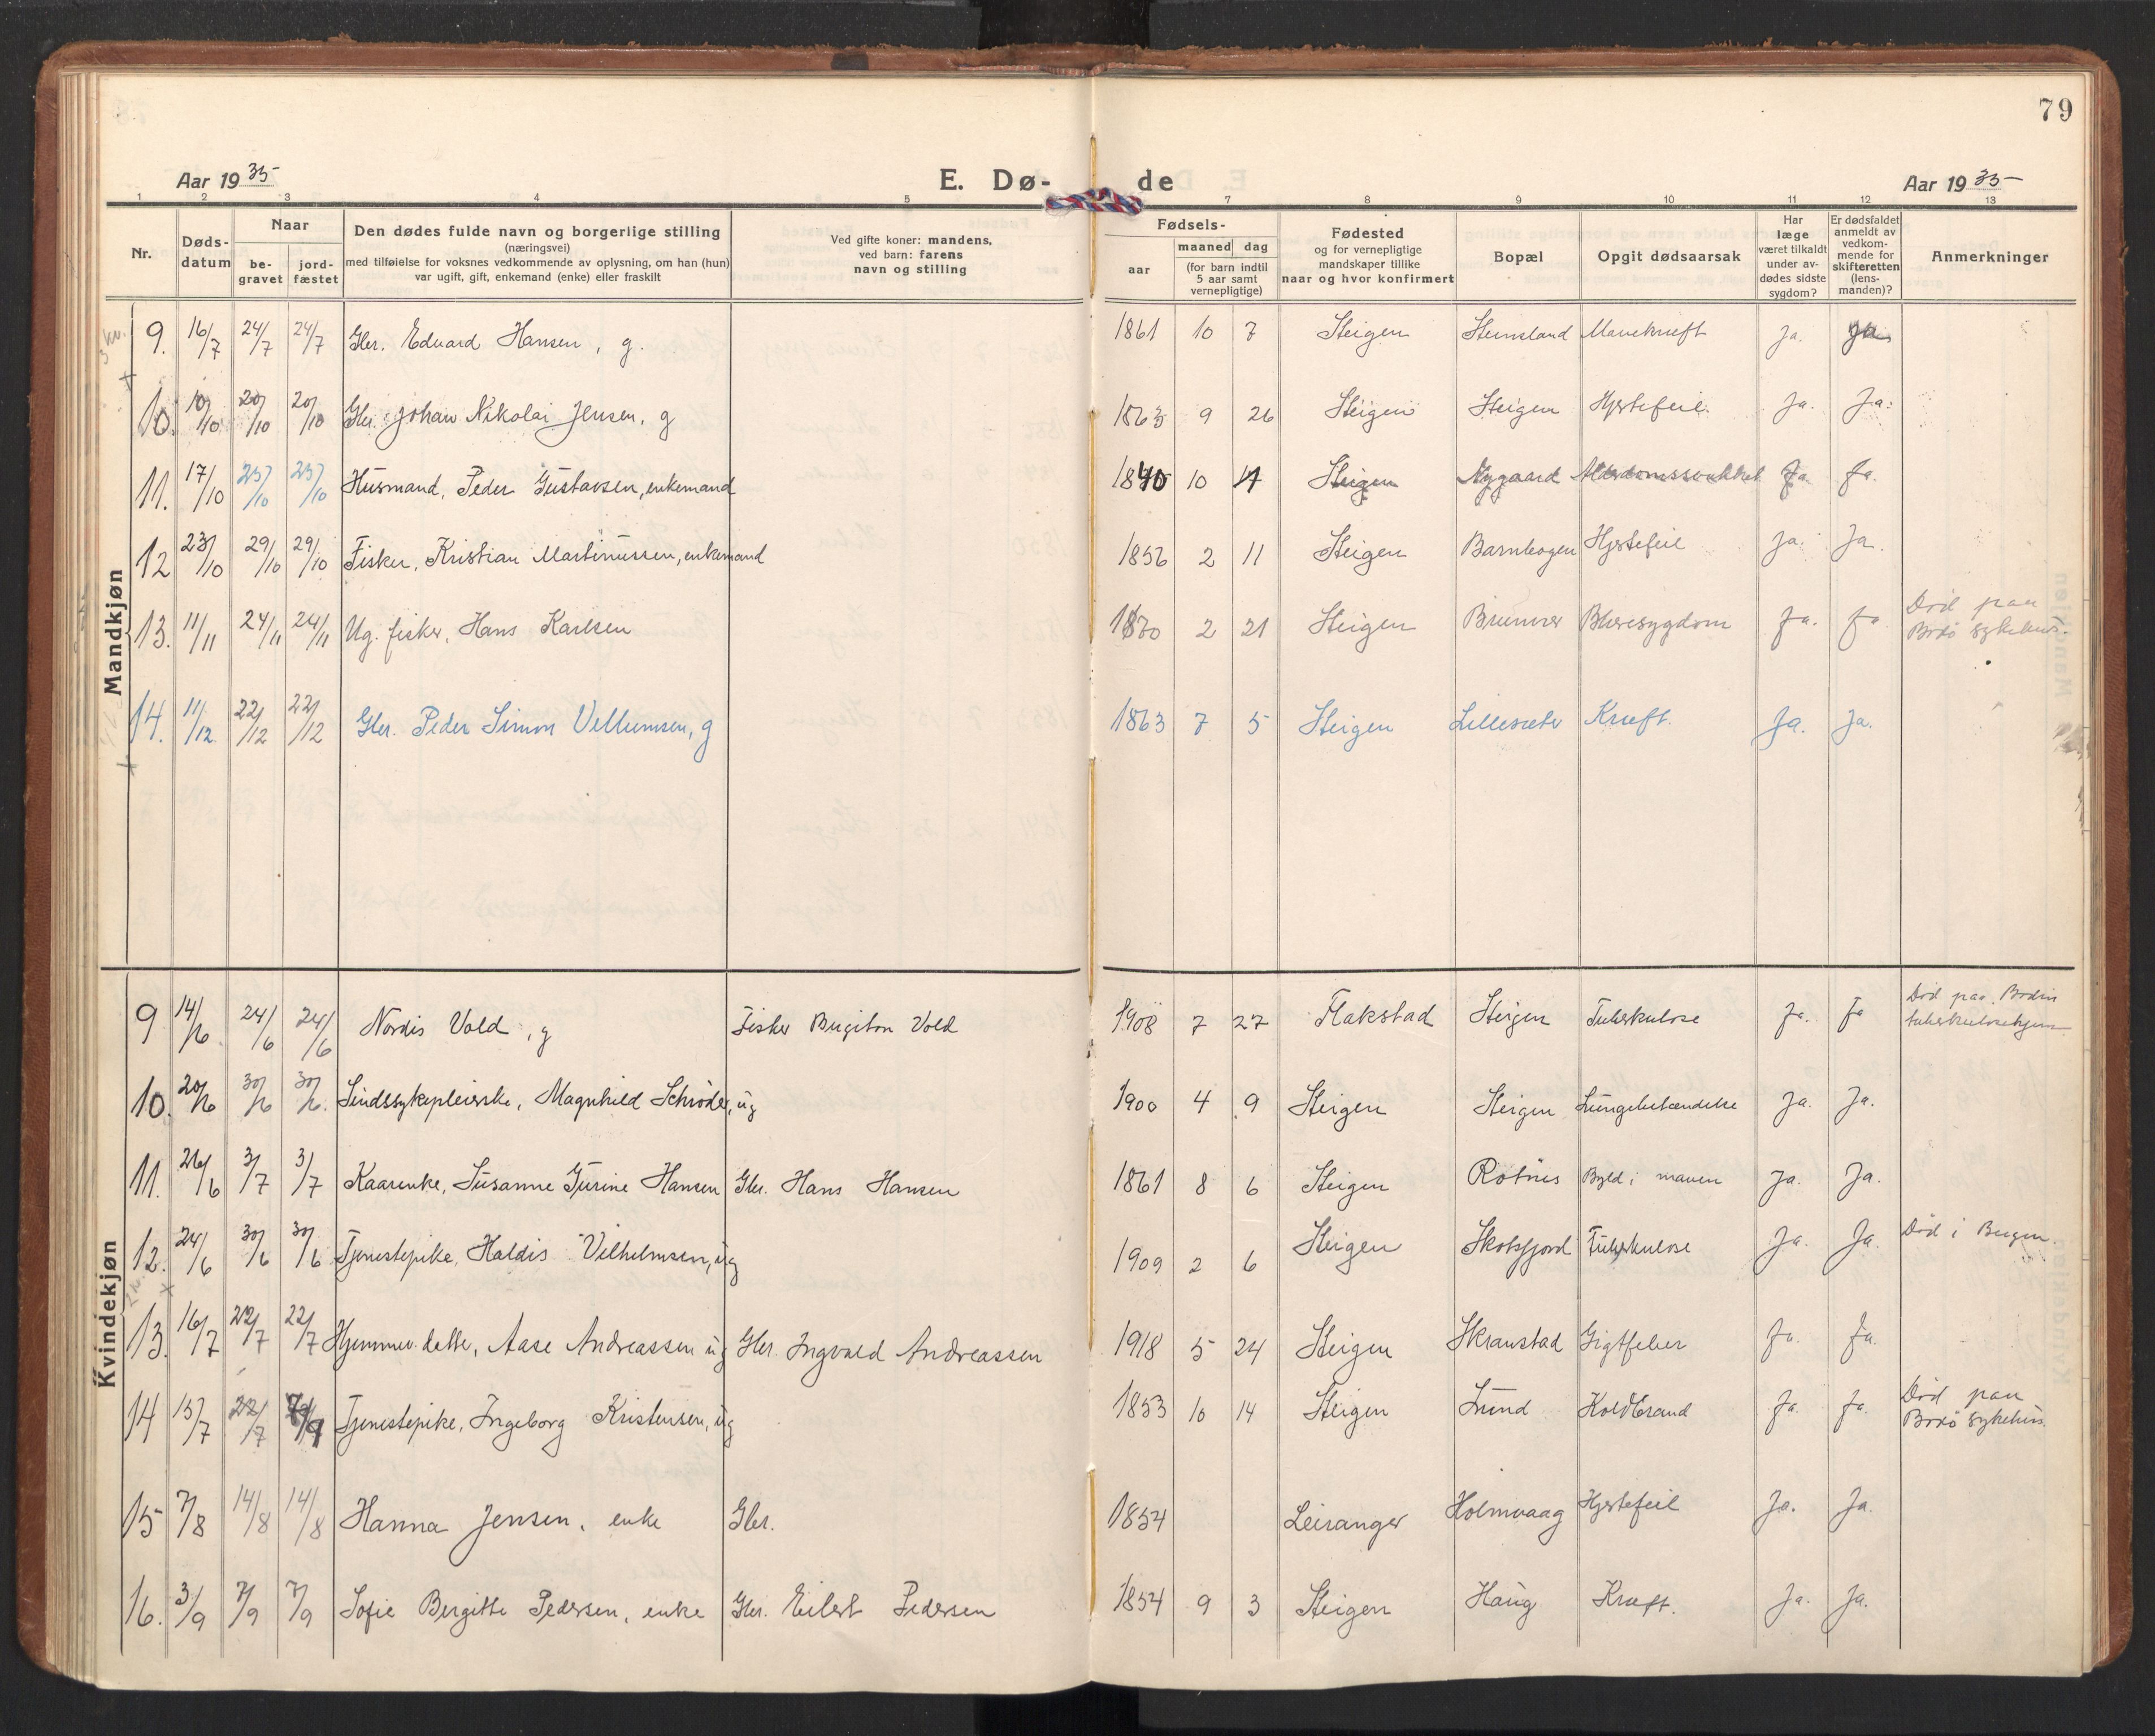 79
Aar 1935
E. Dø-
de
Aar 1935
1 2 3 4 5 7 8 9 10 11 12 13
Nr.
Døds-
datum
Naar
be-
gravet
jord-
fæstet
Den dødes fulde navn og borgerlige stilling
(næringsvei)
med tilføielse for voksnes vedkommende av oplysning, om han (hun)
var ugift, gift, enkemand (enke) eller fraskilt
Ved gifte koner: mandens,
ved barn: farens
navn og stilling
Fødsels-
aar
maaned dag
(for barn indtil
5 aar samt
vernepligtige)
Fødested
og for vernepligtige
mandskaper tillike
naar og hvor konfirmert
Bopæl
Opgit dødsaarsak
Har
læge
været tilkaldt
under av-
dødes sidste
sygdom?
Er dødsfaldet
anmeldt av
vedkom-
mende for
skifteretten
(lens-
manden)?
Anmerkninger
Mandkjøn
9. 16/7 24/7 24/7 Gbr. Eduard Hansen, g. 1861 10 7 Steigen Steinsland Mavekræft Ja. Ja
10. 10/10 20/10 20/10 Gbr. Johan Nikolai Jensen, g 1863 9 26 Steigen Steigen Hjertefeil. Ja. Ja.
11. 17/10 25/10 25/10 Husmand, Peder Gustavsen, enkemand 1840 10 Steigen Nygaard Alderdomssvakhet Ja. Ja.
12 23/10 29/10 29/10 Fisker, Kristian Martinussen, enkemand 1856 2 11 Steigen Barnhogen Hjertefeil Ja. Ja.
13. 11/11 24/11 24/11 Ug. fisker, Hans Karlsen 2 21 Steigen Brunvær Blæresygdom Ja. Ja Død paa
Bodø sykehus.
14. 11/12. 22/12 22/12 Gbr. Peder Simon Vellumsen, g 1863 7 5 Steigen Lillesæter Kræft. Ja. Ja.
Kvindekjøn
9 14/6 24/6 24/6 Nordis Vold, g Fisker Birgiton Vold 1908 7 27 Flakstad Steigen Tuberkulose Ja. Ja Død paa Bodin
tuberkulosehjem
10. 20/6 30/6 30/6. Sindssykepleierske, Magnhild Schrøder, ug 1900 4 9 Steigen Steigen Lungebetændelse Ja. Ja.
11. 26/6 3/7 3/7 Kaarenke, Susanne Gurine Hansen Gbr. Hans Hansen 1861 8 6 Steigen Rotnes Byld i maven Ja. Ja.
12. 24/6 30/6 30/6 Tjenestepike, Haldis Vilhelmsen, ug 1909 2 6 Steigen Skotsfjord Tuberkulose Ja. Ja. Død i Bergen.
13. 16/7 22/7 22/7 Hjemmev. datter, Aase Andreassen ug Gbr. Ingvald Andreassen 1918 5 24 Steigen Skranstad Gigtfeber Ja. Ja.
14 15/7 22/7 7/9 Tjenestepike, Ingeborg Kristensen, ug 1853 10 14 Steigen Lund Koldbrand Ja. Ja. Død paa
Bodø sykehus.
15 7/8 14/8 14/8 Hanna Jensen, enke Gbr. 1854 Leiranger Holmvaag Hjertefeil Ja. Ja.
16. 3/9 7/9 7/9 Sofie Bergitte Pedersen, enke Gbr. Eilert Pedersen 1854 9 3 Steigen Haug Kræft. Ja. Ja.